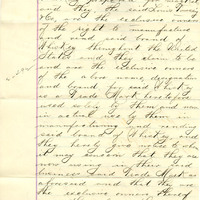 and they the
& Co, and the exclusive owners
of the right to manufacture
and vend said brand of
Whiskey throughout the United
States and they claim to be
and are the exclusive owners
of the above name, designation
and brand for said Whiskey
as a Trade Mark heretofore
used solely by them and now
in actual use by them in
manufacturing and vending
said brand of Whiskey, and
they hereby give notice to whom
it may concern that they are
now using in their said
business said Trade Mark as
aforesaid and that they are
the exclusive owners thereof